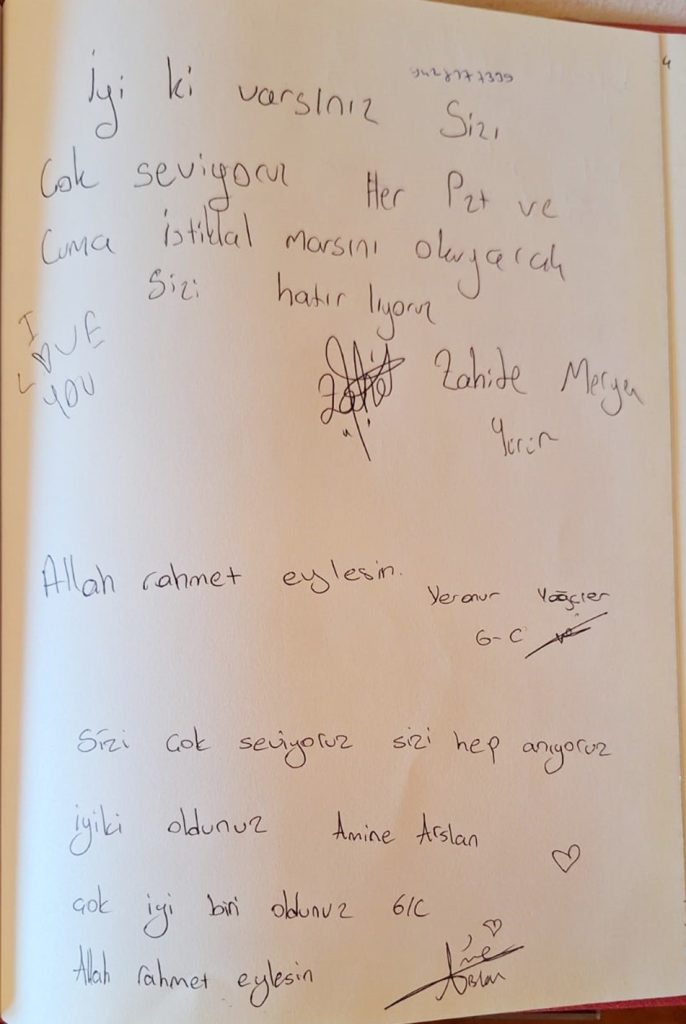 İyi ki varsınız Sizi
Çok seviyoruz Her Pzt ve
Cuma İstiklal marsını okuyarak
Sizi hatırlıyoruz
I
LOVE
YOU
Zahide Meryem
Allah rahmet eylesin.
6-C
Sizi çok seviyoruz sizi hep anıyoruz
iyiki oldunuz Amine Arslan
çok iyi biri oldunuz 6/C
Allah rahmet eylesin
Arslan